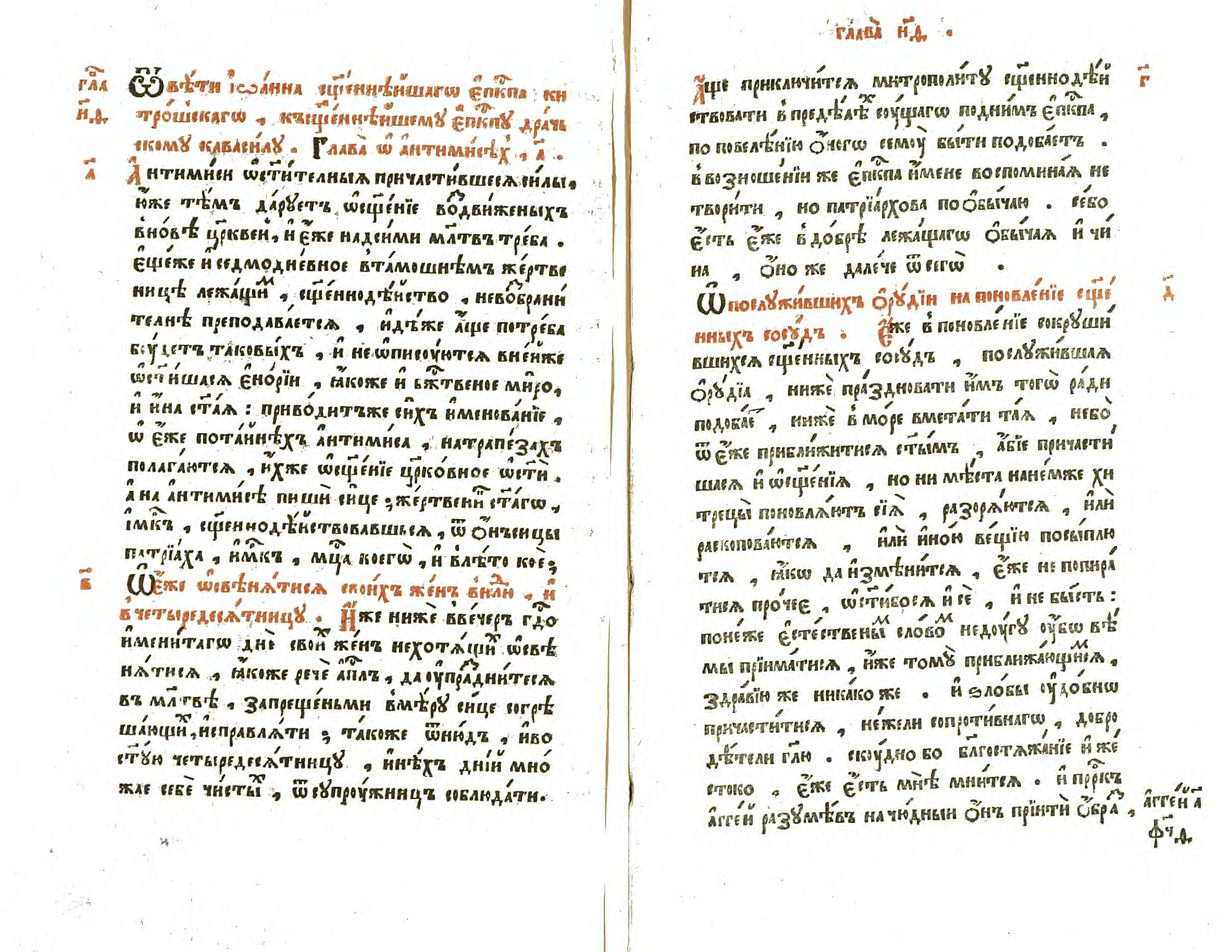 гла҃
н҃д.
Ѿвѣти і҆ѡа́нна сщ҃е́ннѣйшагѡ є҆пкⷭ҇па ки
тро́шскагѡ , късщ҃е́ннѣйшему є҆пкⷭ҇пу дра́чь
скому каваси́лу . Глава̀ ѡ҆ а҆нтими́сѣхъ , а҃ .
а҃
А҆нтими́си ѡ҆ст҃и́телныѧ прича́стившесѧ си́лы,
ю҆́же тѣ́мъ да́руетъ ѡ҆сщ҃е́нїе воⷣви́женыхъ
вно́вѣ цр҃квей, и҆ є҆́же надси́ми мл҃твъ тре́ба .
є҆ще́же и҆ седмодне́вное вта́мошнѣмъ же́ртве
ницѣ лежа́щиⷨ , сщ҃е́ннодѣйство , невоⷥбра́ни
телнѣ преподава́етсѧ , и҆дѣ́же а҆́ще потре́ба
бу́детъ таковы́хъ , и҆ не ѡ҆писоу́ютсѧ вне́йже
ѡ҆ст҃и́шасѧ є҆но́рїи , ꙗ҆́коже и҆ бж҃твеное ми́ро,
и҆ и҆́на ст҃а́ѧ : приво́дитъже си́хъ и҆менова́нїе ,
ѡ҆ є҆́же пота́йнѣхъ а҆нтими́са , натрапе́захъ
полага́ютсѧ , и҆́хже ѡ҆сщ҃е́нїе цр҃ко́вное ѡ҆ст҃ѝ .
а҆ на а҆нтими́сѣ пишѝ си́це ; же́ртвени̑ ст҃а́гѡ ,
і҆мкⷬ҇ъ , сщ҃е́ннодѣйствовавшьсѧ , ѿ ѻ҆нъси́цы
патрїа́ха , и҆мкⷬ҇ъ , мцⷭ҇а ко́егѡ̀ , и҆ влѣ́то коѐ;
в҃
Ѡ҆ є҆́же ѡ҆свѣнѧ́тисѧ свои́хъ же́нъ внлⷣю , и҆
вчетыредесѧ́тницу . И҆́же нижѐ ввече́ръ гдⷭ҇о
и҆мени́тагѡ днѐ свои̑ же́нъ нехотѧ́щиⷯ ѡ҆свѣ
нѧ́тисѧ , ꙗ҆́коже речѐ а҆плⷭ҇ъ , да оу҆пра́знитесѧ
въ мл҃твѣ , запреще́ньми вмѣ́ру си́це согрѣ
ша́ющиⷯ, и҆справлѧ́ти ; та́коже ѿню́дъ , и҆во
ст҃у́ю четыредесѧ́тницу , и҆ и҆нѣ́хъ дні́й мно́
жае себѐ чи́сты̑ , ѿ супроу́жницъ соблюда́ти .
глава̀ н҃д .
г҃
А҆́ще приключи́тсѧ митрополи́ту сщ҃е́ннодѣй
ствовати впредѣ́лѣⷯ соу́щагѡ подни́мъ є҆пкⷭ҇па ,
по повелѣ́нїю ѻ҆́негѡ семоу̀ бы́ти подоба́етъ .
в возноше́нїи же є҆пкⷭ҇па и҆́мене воспомина́ѧ не
твори́ти , но патрїа́рхова по ѻ҆бы́чаю . се́бо
є҆́сть є҆́же вдо́брѣ лежа́щагѡ ѻ҆бы́чаѧ и҆ чи́
на , ѻ҆́но же дале́че ѿ сегѡ̀ .
д҃
Ѡ҆ послужи́вшихъ ѻ҆рꙋ́дїи на поновле́нїе сщ҃е́
нныхъ сосу́дъ . Є҆́же в поновле́нїе сокруши́
вшихсѧ сщ҃е́нныхъ сосу́дъ , послужи́вшаѧ
ѻ҆рꙋ́дїа , нижѐ пра́здновати и҆́мъ тогѡ̀ ра́ди
подоба́еⷮ , нижѐ в мо́ре вмета́ти та́ѧ , небо̀
ѿ є҆́же прибли́житисѧ ст҃ы́мъ , а҆́бїе причасти́
шасѧ и҆ ѡ҆сщ҃е́нїѧ , но ни мѣ́ста нане́мже хи
трецы̀ поновлѧ́ютъ сїѧ̀ , разорѧ́ютсѧ , и҆лѝ
раскопова́ютсѧ , и҆лѝ и҆но́ю ве́щїю посы́плю
тсѧ , ꙗ҆́кѡ да и҆змѣни́тсѧ , є҆́же не попира́
тисѧ про́чеє , ѡ҆ст҃и́босѧ и҆ сѐ , и҆ не бы́сть :
поне́же є҆сте́ствены̑ сло́воⷨ недоу́гу оу҆́бѡ вѣ́
мы прїима́тисѧ , и҆́же томꙋ̀ приближа́ющиⷨсѧ ,
здра́вїю же ника́ко же . и҆ ѕло́бы оу҆до́бнѡ
причасти́тисѧ , не́жели сопроти́внагѡ , добро
дѣ́тели гл҃ю . скоу́дно бо бл҃госта́жа́нїе и҆ же́
стоко , є҆́же є҆́сть мнѣ̀ мни́тсѧ . и҆ прⷪ҇ркъ
а҆гге́й разумѣ́въ на чю́дныи ѻ҆́нъ прїитѝ ѻ҆́браⷥ ,
а҆гге́й а҃
фч҃д.